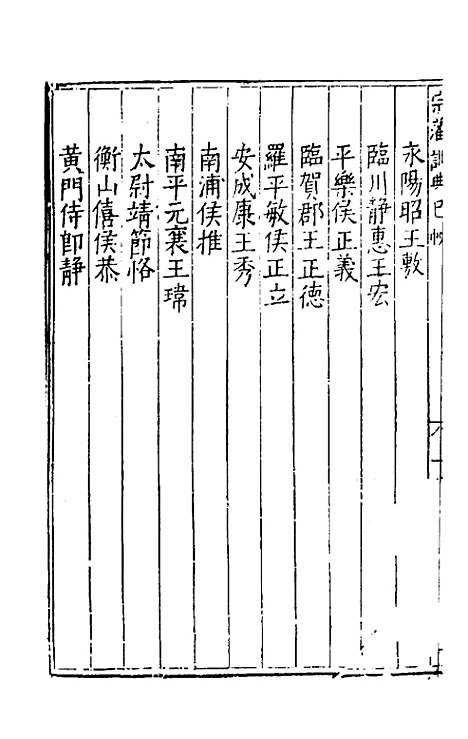 宗藩訓典巳
永陽昭王敷
臨川靜惠王宏
平樂侯正義
臨賀郡王正德
羅平敏侯正立
安成康王秀
南浦侯推
南平元襄王瑋
太尉靖節恪
衡山僖侯恭
黃門侍郎靜